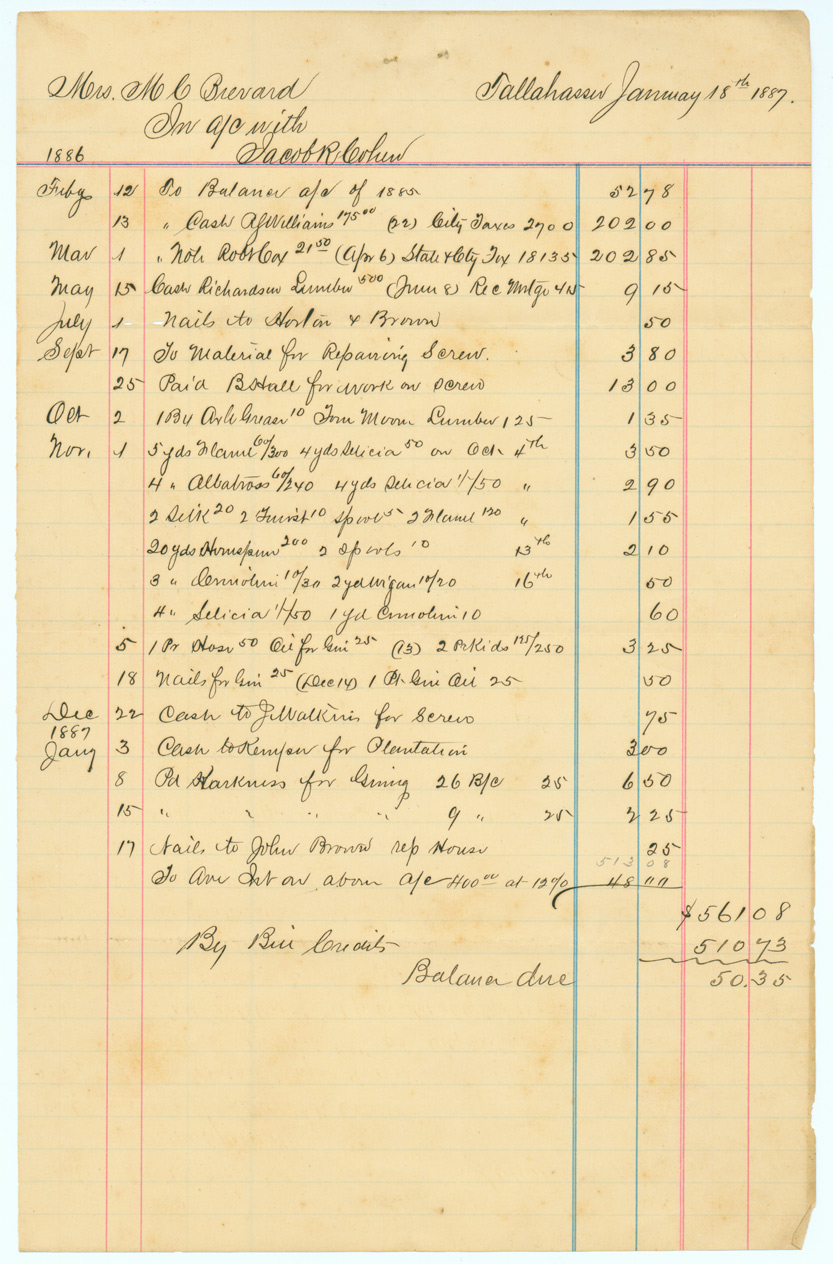 Mrs. M C Brevard Tallahassee January 18th 1887.
In a/c with
1886 Jacob R Cohen
Feby 12 To Balance a/c of 1885 52 78
13 " Cash AJWilliams 175 00 (22) City Taxes 27 00 202 00
Mar 1 " Note Robt Cox 21 50 (Apr 6) State & Cty Tax 181 35 202 85
May 15 Cash Richardson Lumber 5 00 (June 8) Rec Mrtge 4 15 9 15
July 1 Nails to Horton & Brown 50
Sept 17 To Material for Repairing Screw. 3 80
25 Paid B Hall for work on Screw 13 00
Oct 2 1 Bx Axle Grease 10 Tom Moore Lumber 1 25 1 35
Nov. 1 5 yds Flannel 60/300 4 yds Selicia 50 on Oct. 4th 3 50
4 " Albatross 60/240 4 yds Selicia 1/50 " 2 90
2 Silk 20 2 Twist 10 Spool 5 2 Flannel 120 " 1 55
20 yds Homespun 200 2 Spools 10 13th 2 10
3 " Crinolin 10/30 2 yd Wigan 10/20 16th 50
4 " Selicia 1/50 1 yd Crinolin 10 60
5 1 Pr Hose 50 Oil for Gin 25 (13) 2 Pr Kids 125/250 3 25
18 Nails for Gin 25 (Dec 14) 1 Pt Gin Oil 25 50
Dec 22 Cash to J Watkins for Screw 75
1887
Jany 3 Cash to Kemper for Plantation 3 00
8 Pd Harkness for Gining 26 B/c 25 6 50
15 " " " " 9 " 25 2 25
17 Nails to John Brown rep House 25
513 08
To Ave Int on above a/c 400 00 at 12% 48 00
$561 08
By Bill Credits 510 73
Balance due 50.35